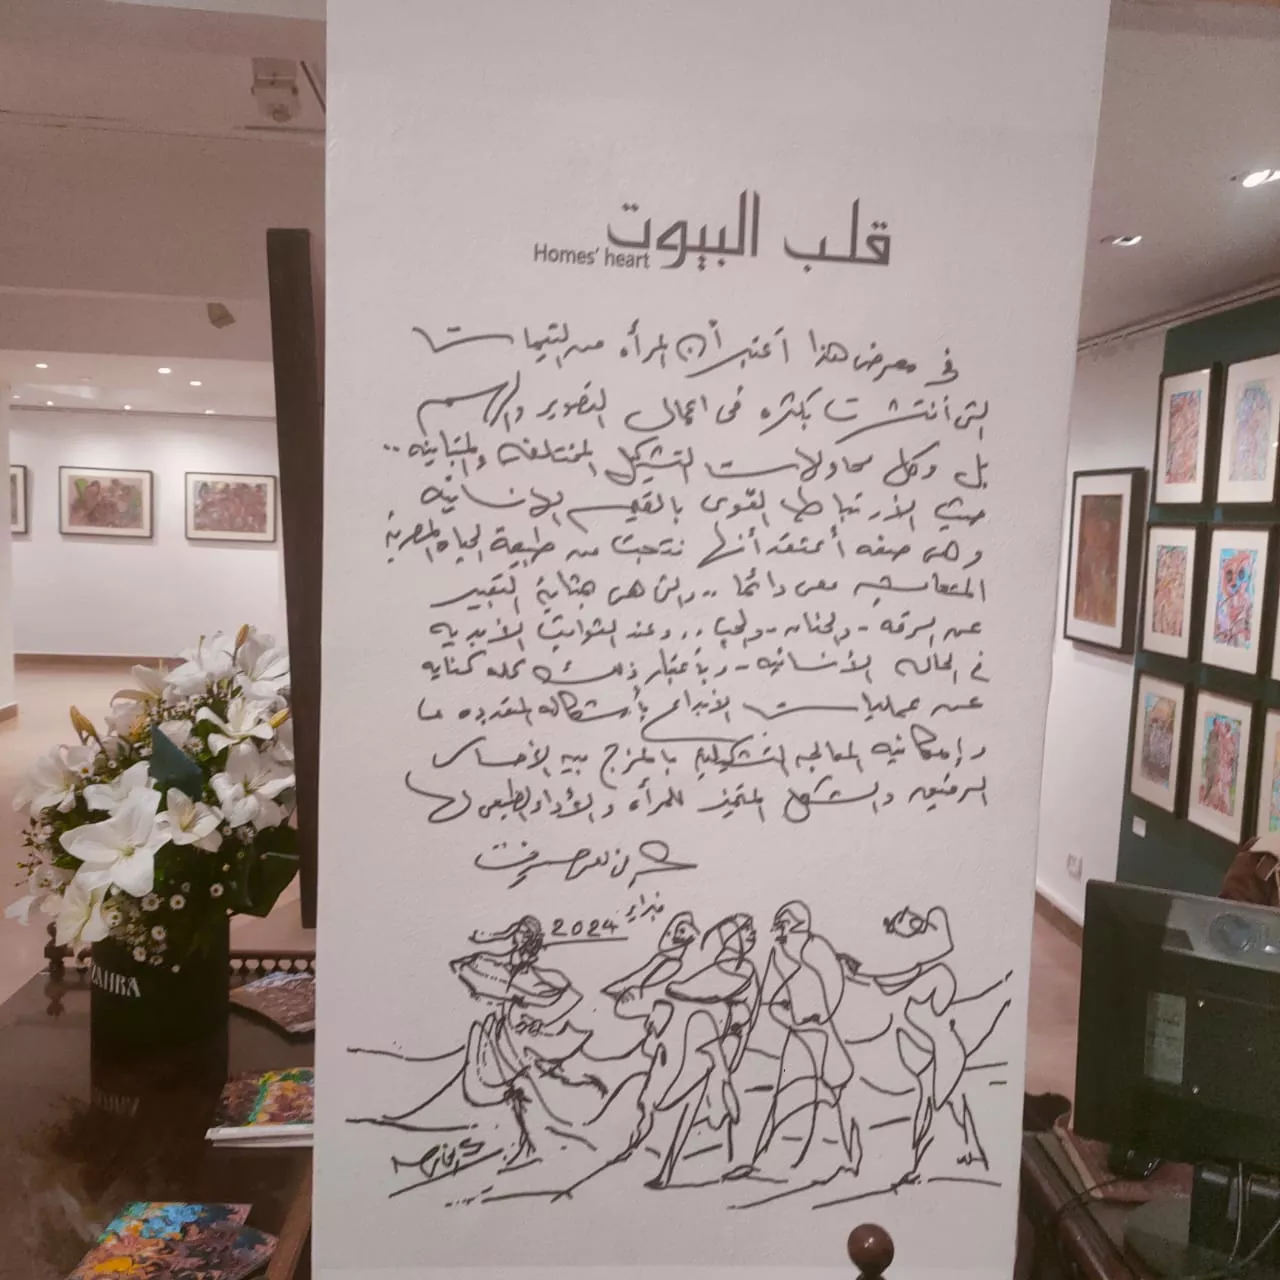 قلب البيوت
Homes' heart
فى معرض هذا أعتبر أن المرأه من التيمات
التى أنتشرت بكثره فى اعمال التصوير والرسم
بل وكل محاولات التشكيل المختلفه والمتباينه ..
حيث الأرتباط القوى بالقيم الانسانيه
وهى صفه أعتقد أنها نتجت من طبيعة الحياه المصرية
المتعايشه معى دائما .. والتى هى بمثابة التعبير
عن الرقه - والحنان - والحب .. وعند الثوابت الأبديه
فى الحاله الأنسانيه - وبأعتبار ذلك كله كنايه
عن عمليات الأبداع بأشكاله المتعدده
وإمكانيه المعالجه التشكيلية بالمزج بين الاحساس
الرقيق والشكل المتميز للمرأه والأداء الطبيعى لها
فبراير
2024
ZAHRA